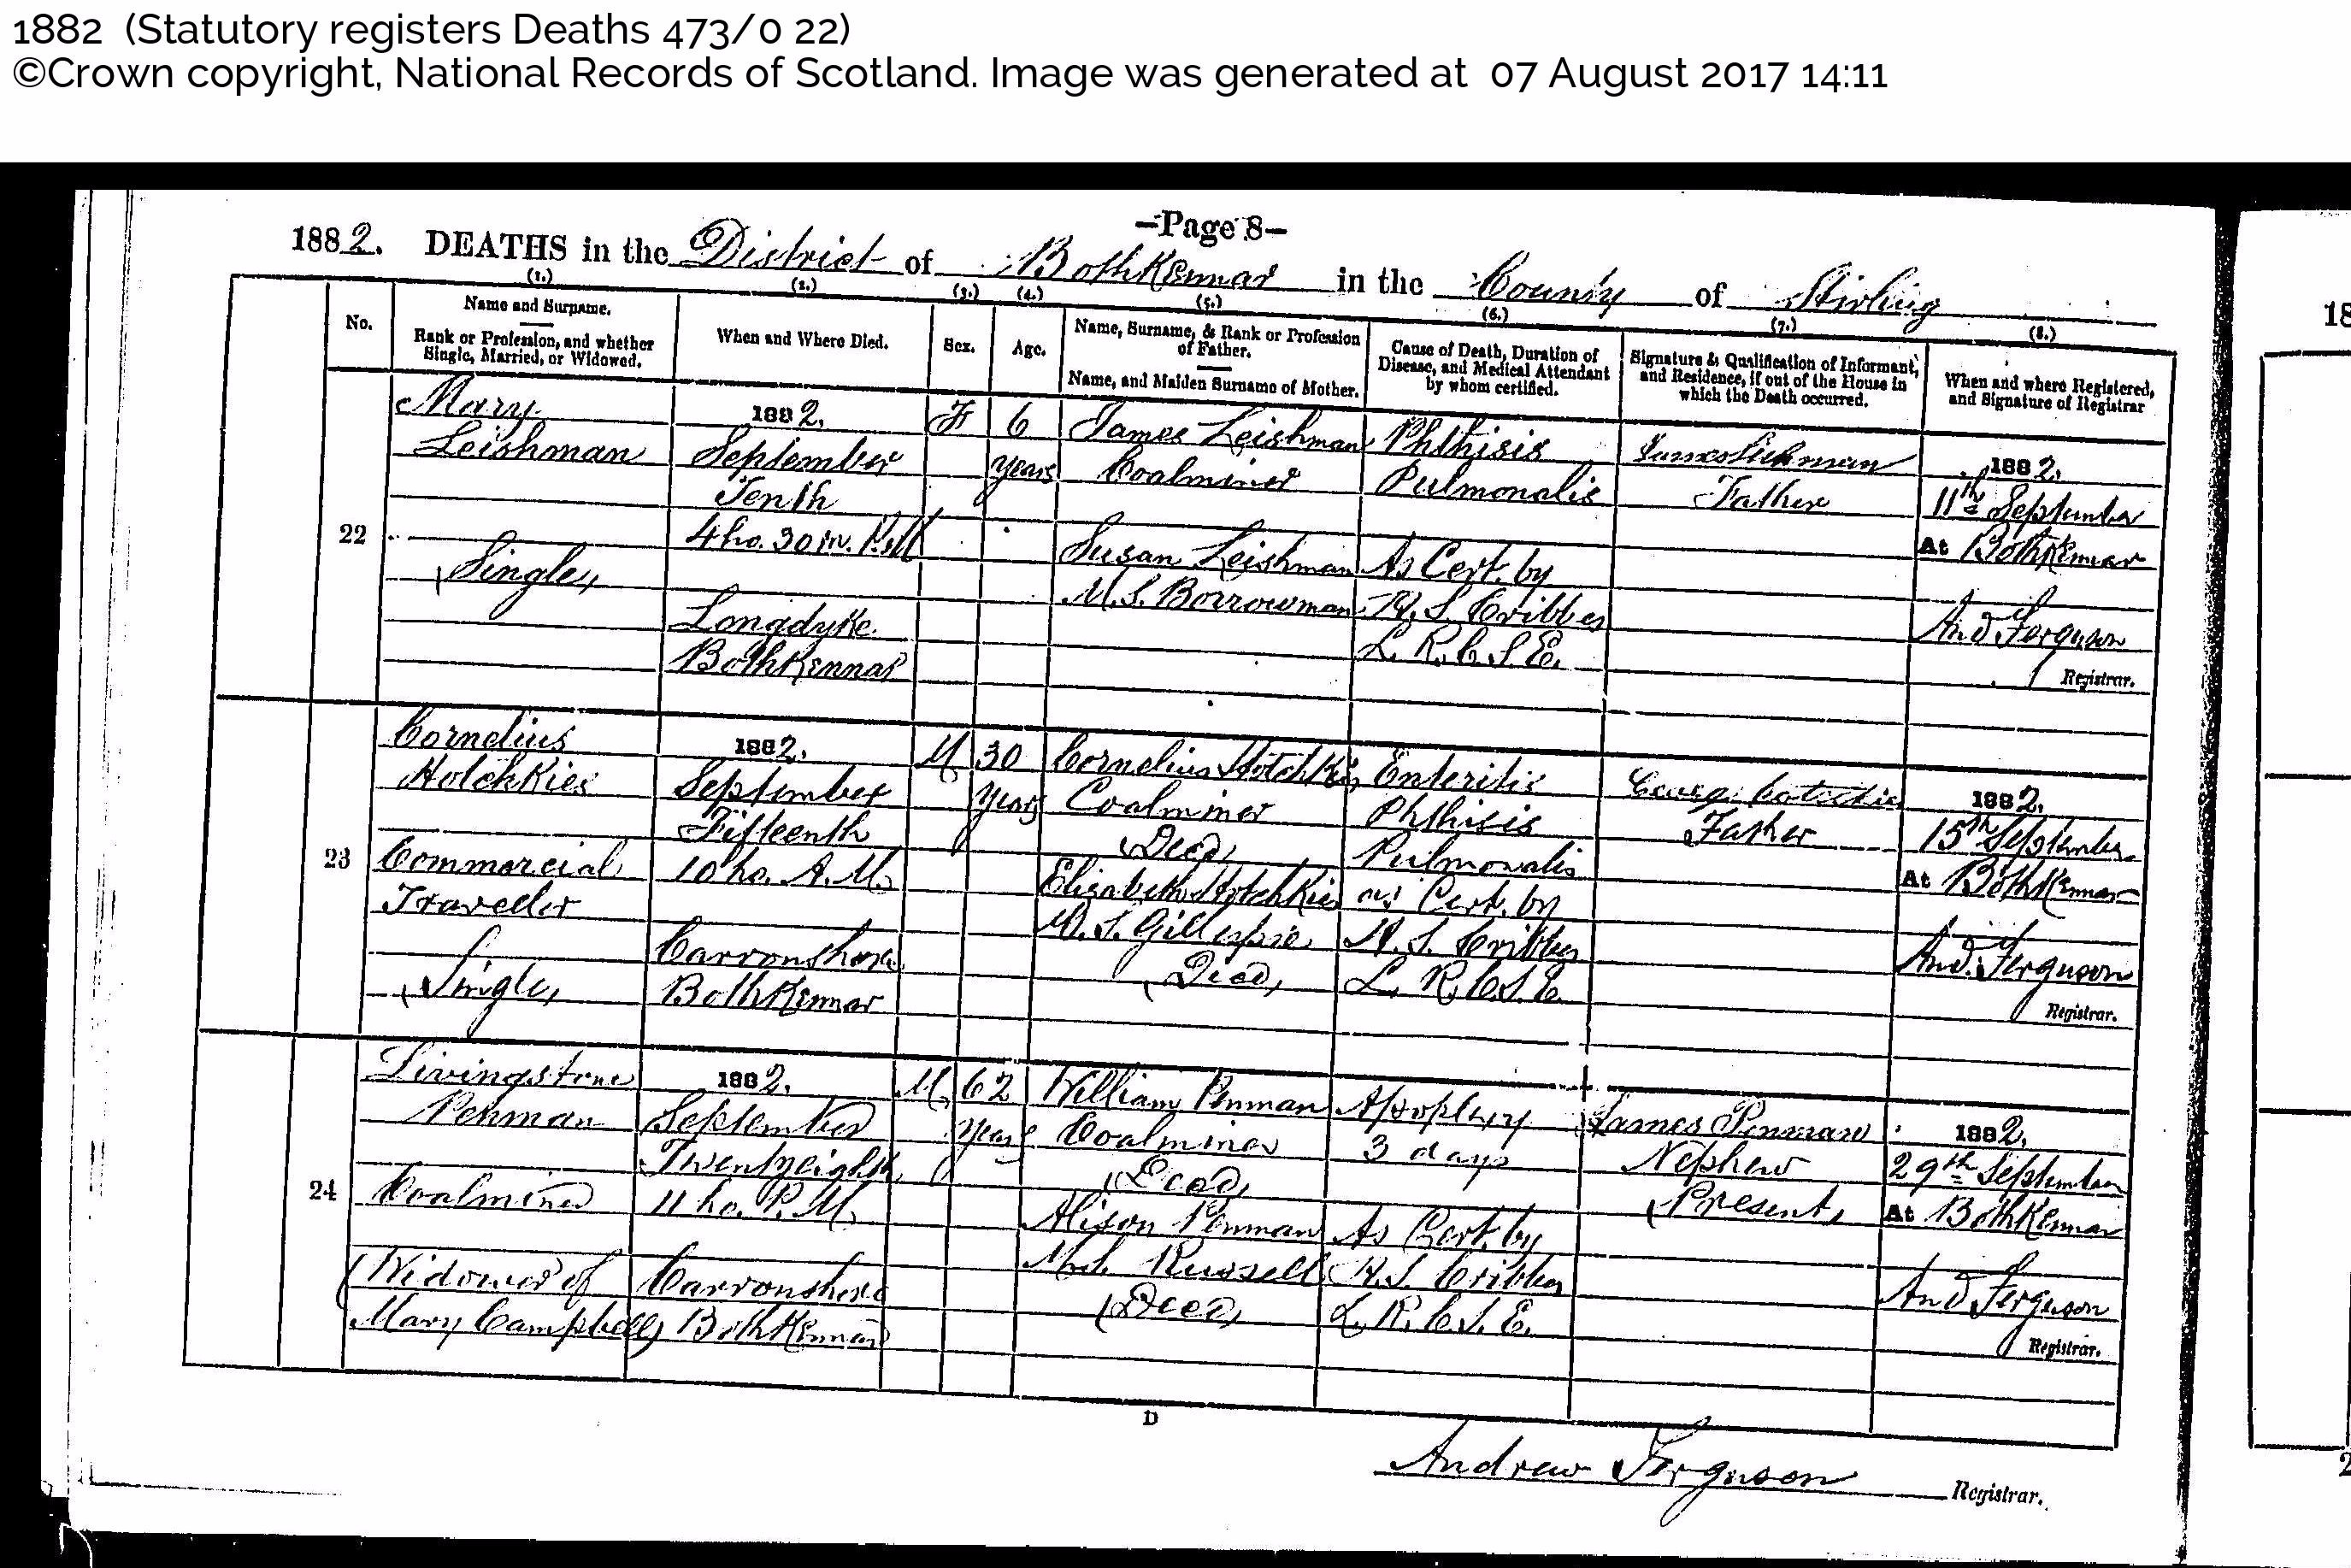 1882 (Statutory registers Deaths 473/0 22)
©Crown copyright, National Records of Scotland. Image was generated at 07 August 2017 14:11
-Page 8-
1882. DEATHS in the District of Bothkennar in the County of Stirling
No.
(1.)
Name and Surname.
Rank or Profession, and whether
Single, Married, or Widowed.
(2.)
When and Where Died.
(3.)
Sex.
(4.)
Age.
(5.)
Name, Surname, & Rank or Profession
of Father.
Name, and Maiden Surname of Mother.
(6.)
Cause of Death, Duration of
Disease, and Medical Attendant
by whom certified.
(7.)
Signature & Qualification of Informant,
and Residence, if out of the House in
which the Death occurred.
(8.)
When and where Registered,
and Signature of Registrar
22
Mary
Leishman
(Single)
1882.
September
Tenth
4 ho. 30 m. P.M
Longdyke
Bothkennar
F
6
years
James Leishman
Coalminer
Susan Leishman
M.S. Borrowman
Phthisis
Pulmonalis
As Cert. by
L.R.C.S.E.
James
Father
1882.
11th September
At Bothkennar
And Ferguson
Registrar.
23
Cornelius
Hotchkies
Commercial
Traveller
(Single)
1882.
September
Fifteenth
10 ho. A.M.
Carronshore
Bothkennar
M
30
years
Cornelius Hotchkies
Coalminer
(Decd)
Elizabeth Hotchkies
M.S. Gillespie
(Decd)
Enteritis
Phthisis
Pulmonalis
as Cert. by
L.R.C.S.E.
Father
1882.
15th September
At Bothkennar
And. Ferguson
Registrar.
24
Livingstone
Penman
Coalminer
(Widower of
Mary Campbell)
1882.
September
Twentyeighth
11 ho. P.M.
Carronshore
Bothkennar
M.
62
years
William Penman
Coalminer
(Decd)
Alison Penman
M.S. Russell
(Decd)
Apoplexy
3 days
As Cert. by
L.R.C.S.E.
James Penman
Nephew
(Present)
1882.
29th September
At Bothkennar
And Ferguson
Registrar.
D
Andrew Ferguson Registrar.
18
2